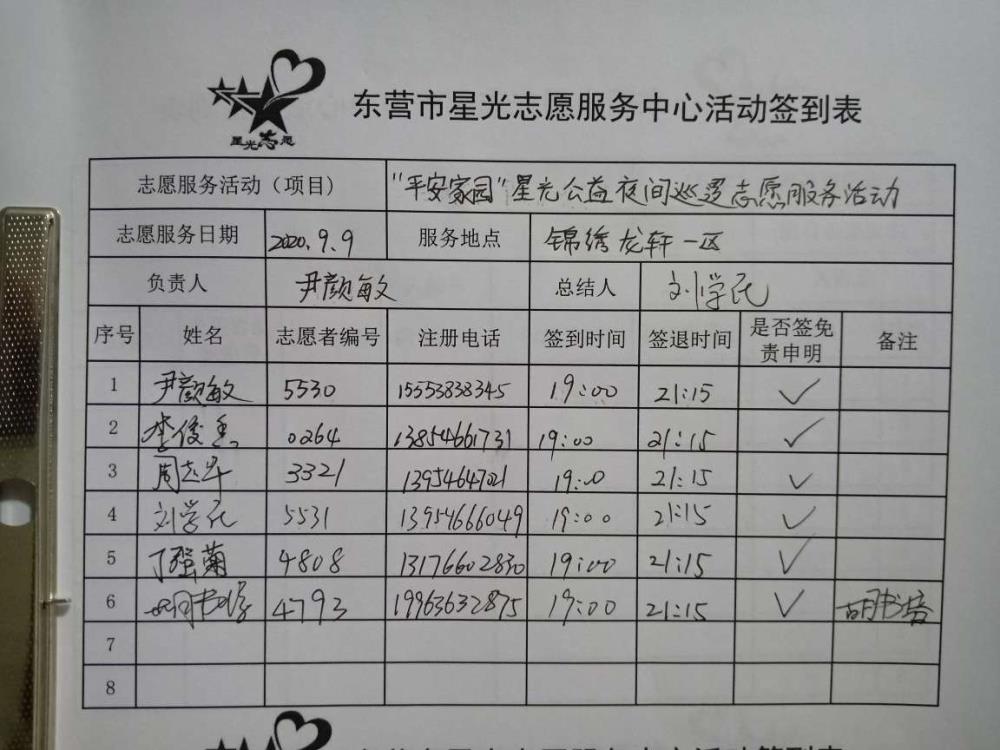 星光志愿
东营市星光志愿服务中心活动签到表
志愿服务活动（项目） “平安家园”星光公益夜间巡逻志愿服务活动
志愿服务日期 2020.9.9 服务地点 锦绣龙轩一区
负责人 尹颜敏 总结人 刘学民
序号 姓名 志愿者编号 注册电话 签到时间 签退时间 是否签免责申明 备注
1 尹颜敏 5530 15553838345 19:00 21:15 ✓
2 李俊 0264 13854661731 19:00 21:15 ✓
3 周志华 3321 13954647021 19:00 21:15 ✓
4 刘学民 5531 13954666049 19:00 21:15 ✓
5 丁强菊 4808 13176602830 19:00 21:15 ✓
6 胡书培 4793 19963632875 19:00 21:15 ✓ 胡书培
7
8